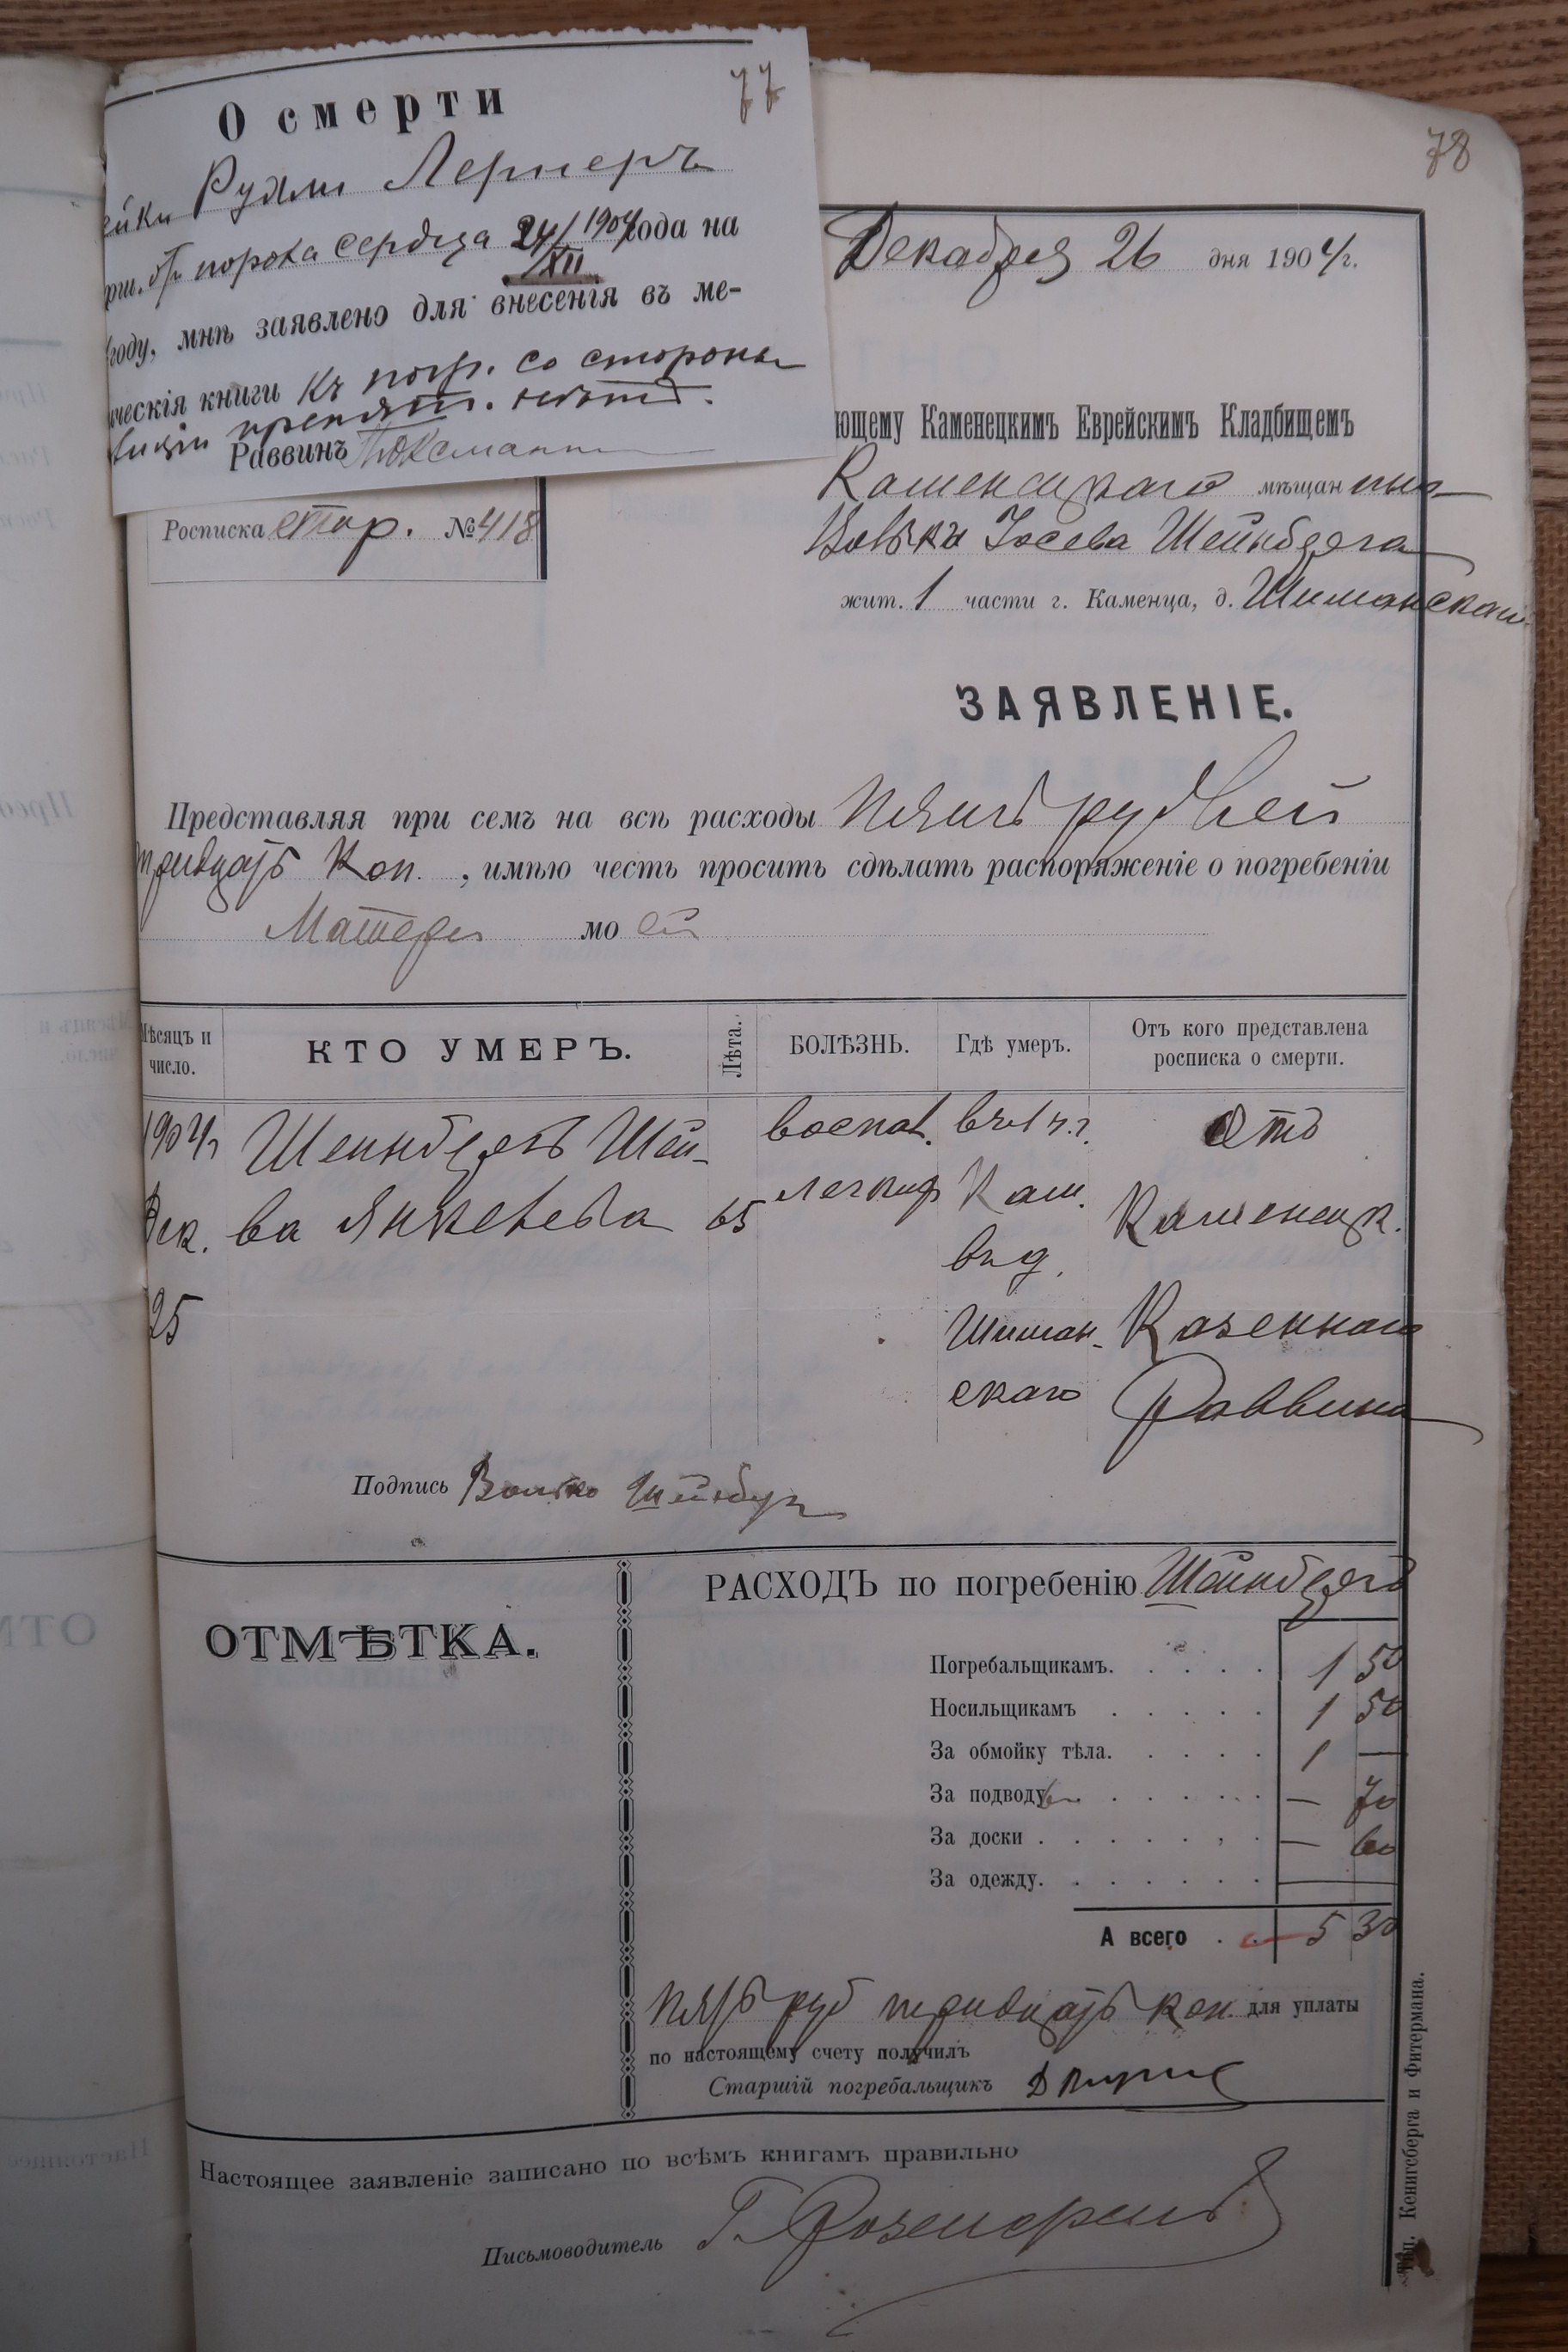 77
О смерти
ейки Рухли Лернеръ
отъ порока сердца 24/XII 1904 года на
году, мнѣ заявлено для внесенія въ ме-
ическія книги къ погр. со стороны
полиціи препятст. нѣтъ.
Раввинъ
78
Декабря 26 дня 1904 г.
ющему Каменецкимъ Еврейскимъ Кладбищемъ
Каменецкаго мѣщанина
Волька Іосева Шейнберга
жит. 1 части г. Каменца, д. Шиманскаго
Росписка стор. №418
ЗАЯВЛЕНІЕ.
Представляя при семъ на всѣ расходы пять рублей
тридцать коп., имѣю честь просить сдѣлать распоряженіе о погребеніи
Матери моей
Мѣсяцъ и число. КТО УМЕРЪ. Лѣта. БОЛѢЗНЬ. Гдѣ умеръ. Отъ кого представлена росписка о смерти.
1904 г. Шейнбергъ Шей- воспал. въ 1 ч. г. Отъ
Дек. ва Янкелева 65 легких Кам. Каменецк.
въ д.
25 Шиман- Казеннаго
скаго Раввина
Подпись Волько Шейнберг
ОТМѢТКА.
РАСХОДЪ по погребенію Шейнбергъ
Погребальщикамъ. 1 50
Носильщикамъ 1 50
За обмойку тѣла. 1 —
За подводу — 70
За доски — 60
За одежду. —
А всего 5 30
пять руб тридцать коп. для уплаты
по настоящему счету получилъ
Старшій погребальщикъ
Настоящее заявленіе записано по всѣмъ книгамъ правильно
Письмоводитель
Тип. Кенигсберга и Фитермана.